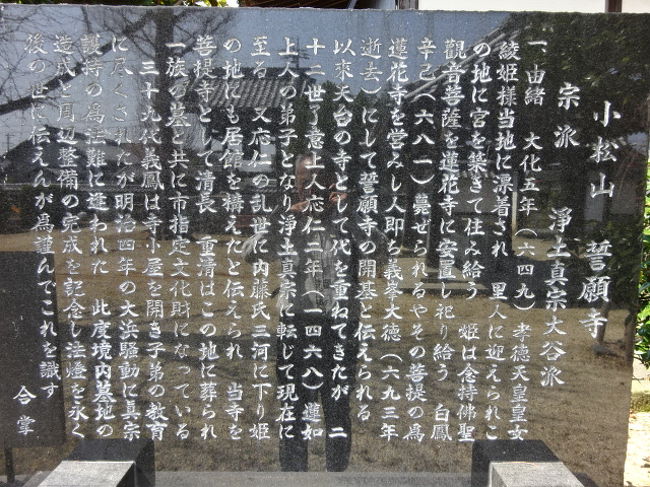 小松山 誓願寺
宗派 浄土真宗大谷派
一、由緒 大化五年(六四九)孝徳天皇皇女
綾姫様当地に漂着され 里人に迎えられこ
の地に宮を築きて住み給う 姫は念持佛聖
觀音菩薩を蓮花寺に安置し祀り給う 白鳳
辛巳(六八一)薨ぜられるやその菩提の為
蓮花寺を営みし人即ち義峯大徳(六九三年
逝去)にして誓願寺の開基と伝えられる
以來天台の寺として代を重ねてきたが 二
十二世了意上人応仁二年(一四六八)蓮如
上人の弟子となり淨土真宗に転じて現在に
至る 又応仁の乱世に内藤氏三河に下り姫
の地にも居館を構えたと伝えられ 当寺を
菩提寺として清長 重清はこの地に葬られ
一族の墓と共に市指定文化財になっている
三十九代義鳳は寺小屋を開き子弟の教育
に尽くされたが明治四年の大浜騒動に真宗
護持の為法難に逢われた 此度境内墓地の
造成と周辺整備の完成を記念し法燈を永く
後の世に伝えんが為謹んでこれを識す
合掌